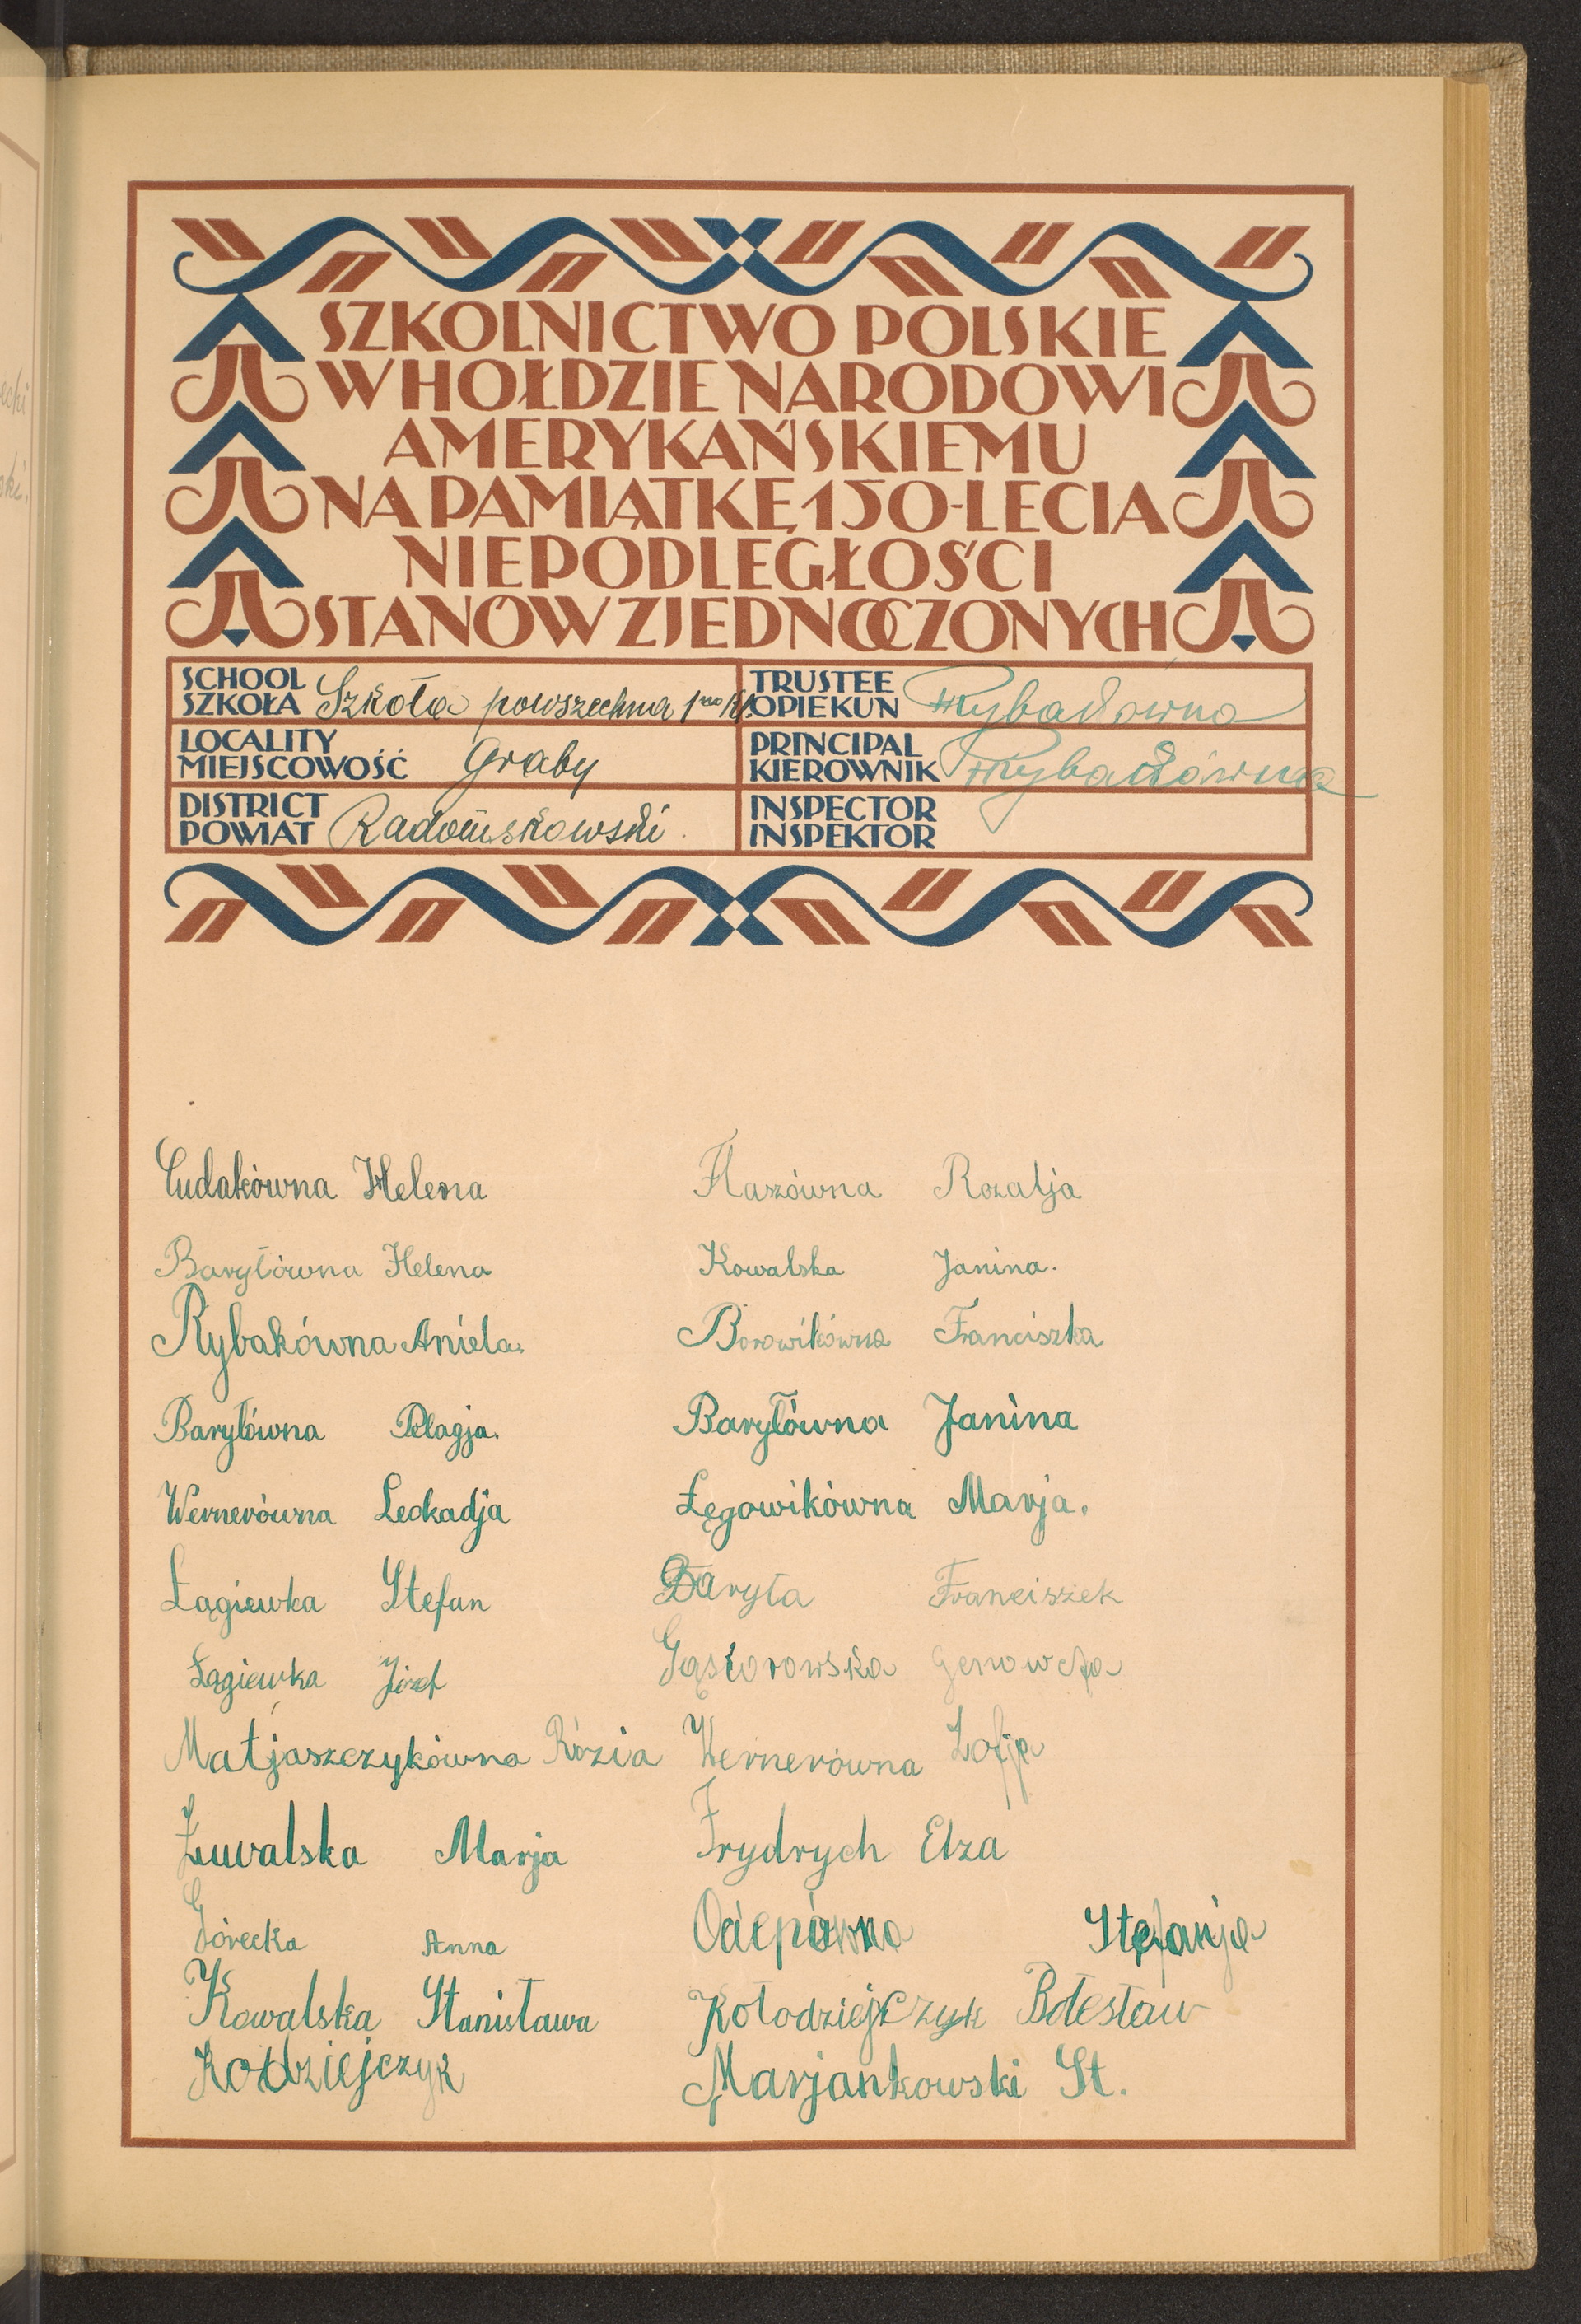 SZKOLNICTWO POLSKIE
W HOŁDZIE NARODOWI
AMERYKAŃSKIEMU
NA PAMIĄTKĘ 150-LECIA
NIEPODLEGŁOŚCI
STANÓW ZJEDNOCZONYCH
SCHOOL
SZKOŁA Szkoła powszechna 1
TRUSTEE
OPIEKUN
LOCALITY
MIEJSCOWOŚĆ Graby
PRINCIPAL
KIEROWNIK
DISTRICT
POWIAT Radomskowski
INSPECTOR
INSPEKTOR
Cudakówna Helena
Baryłówna Helena
Rybakówna Aniela
Baryłówna Pelagja.
Wernerówna Leokadja
Łągiewka Stefan
Łągiewka Józef
Matjaszczykówna Rózia
Marja
Górecka Anna
Kowalska Stanisława
Kodziejczyk
Flaszówna Rozalja
Kowalska Janina.
Borowikówna Franciszka
Baryłówna Janina
Łęgowikówna Marja.
Baryła Franciszek
Gąsiorowska Genowefa
Wernerówna Zofja
Frydrych Elza
Ociepówna Stefanja
Kołodziejczyk Bolesław
Marjankowski St.